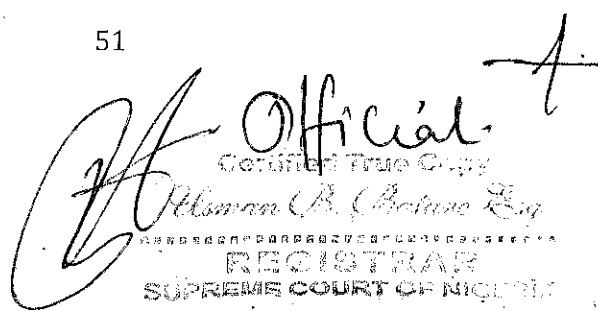 51
Official
Certified True Copy
REGISTRAR
SUPREME COURT OF NIGERIA